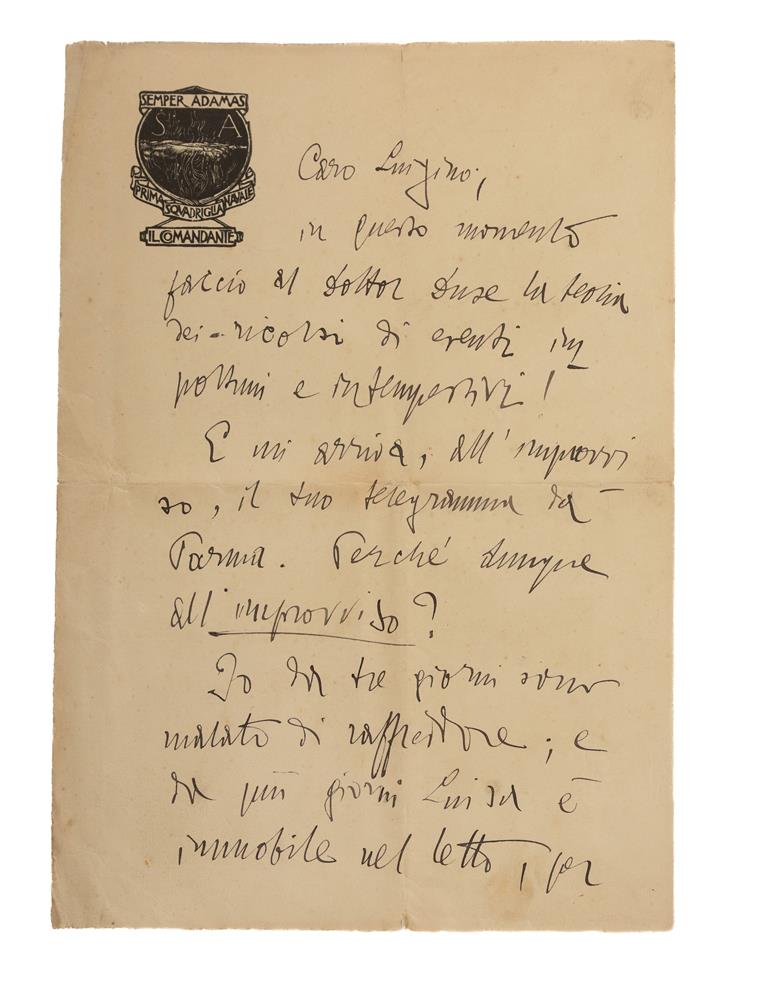 SEMPER ADAMAS
S A
PRIMA SQUADRIGLIA NAVALE
IL COMANDANTE
Caro Luigino,
in questo momento
faccio al Dottor Duse la teoria
dei ricorsi di eventi im
portuni e intempestivi!
E mi arriva, all'improvvi
so, il tuo telegramma da
Parma. Perché dunque
all'improvviso?
Io da tre giorni sono
malato di raffreddore; e
da più giorni Luisa è
immobile nel letto, per